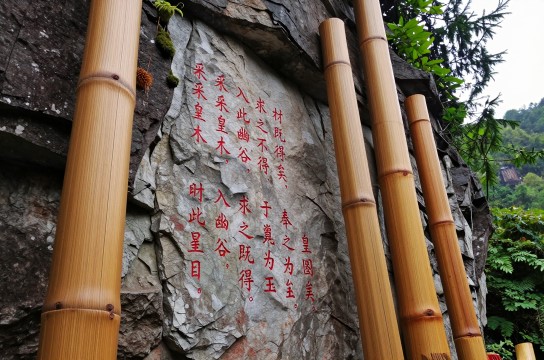 采采皇木 财此呈目。
采采皇木 入幽谷。
入此幽谷 求之既得。
求之不得 于為玉
材既得矣, 奉之为至
皇图美